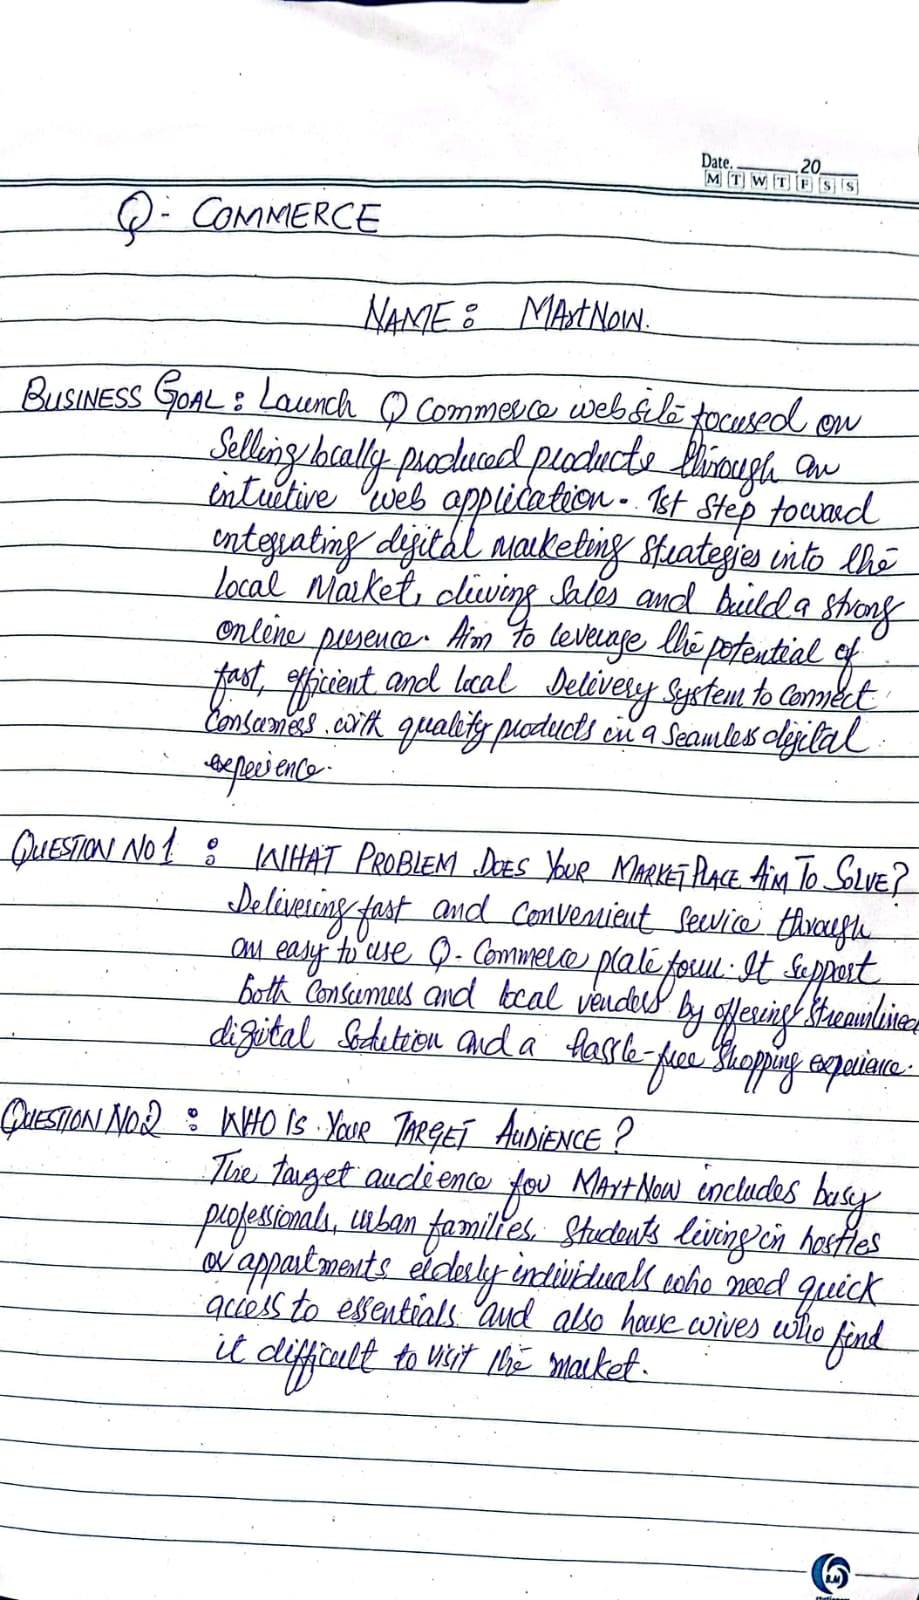 Date. 20
M T W T F S S
Q - COMMERCE
NAME : MArtNow.
BUSINESS GOAL : Launch Q Commerce website focused on
Selling locally produced products through an
intuetive web application. 1st Step toward
integrating digital marketing strategies into the
local Market, driving Sales and build a strong
online presence. Aim to leverage the potential of
fast, efficient and local Delivery System to Connect
Consumers with quality products in a seamless digital
experience.
QUESTION NO 1 : WHAT PROBLEM DOES YOUR MARKETPLACE AIM TO SOLVE?
Delivering fast and convenient service through
an easy to use Q-Commerce plateform. It support
both Consumers and local venders by offering Streamlined
digital Solution and a hassle-free Shopping experience.
QUESTION NO.2 : WHO IS YOUR TARGET AUDIENCE ?
The target audience for MArtNow includes busy
professionals, urban families, Students living in hostles
or appartments, elderly individuals who need quick
access to essentials and also house wives who find
it difficult to visit the market.
R.M